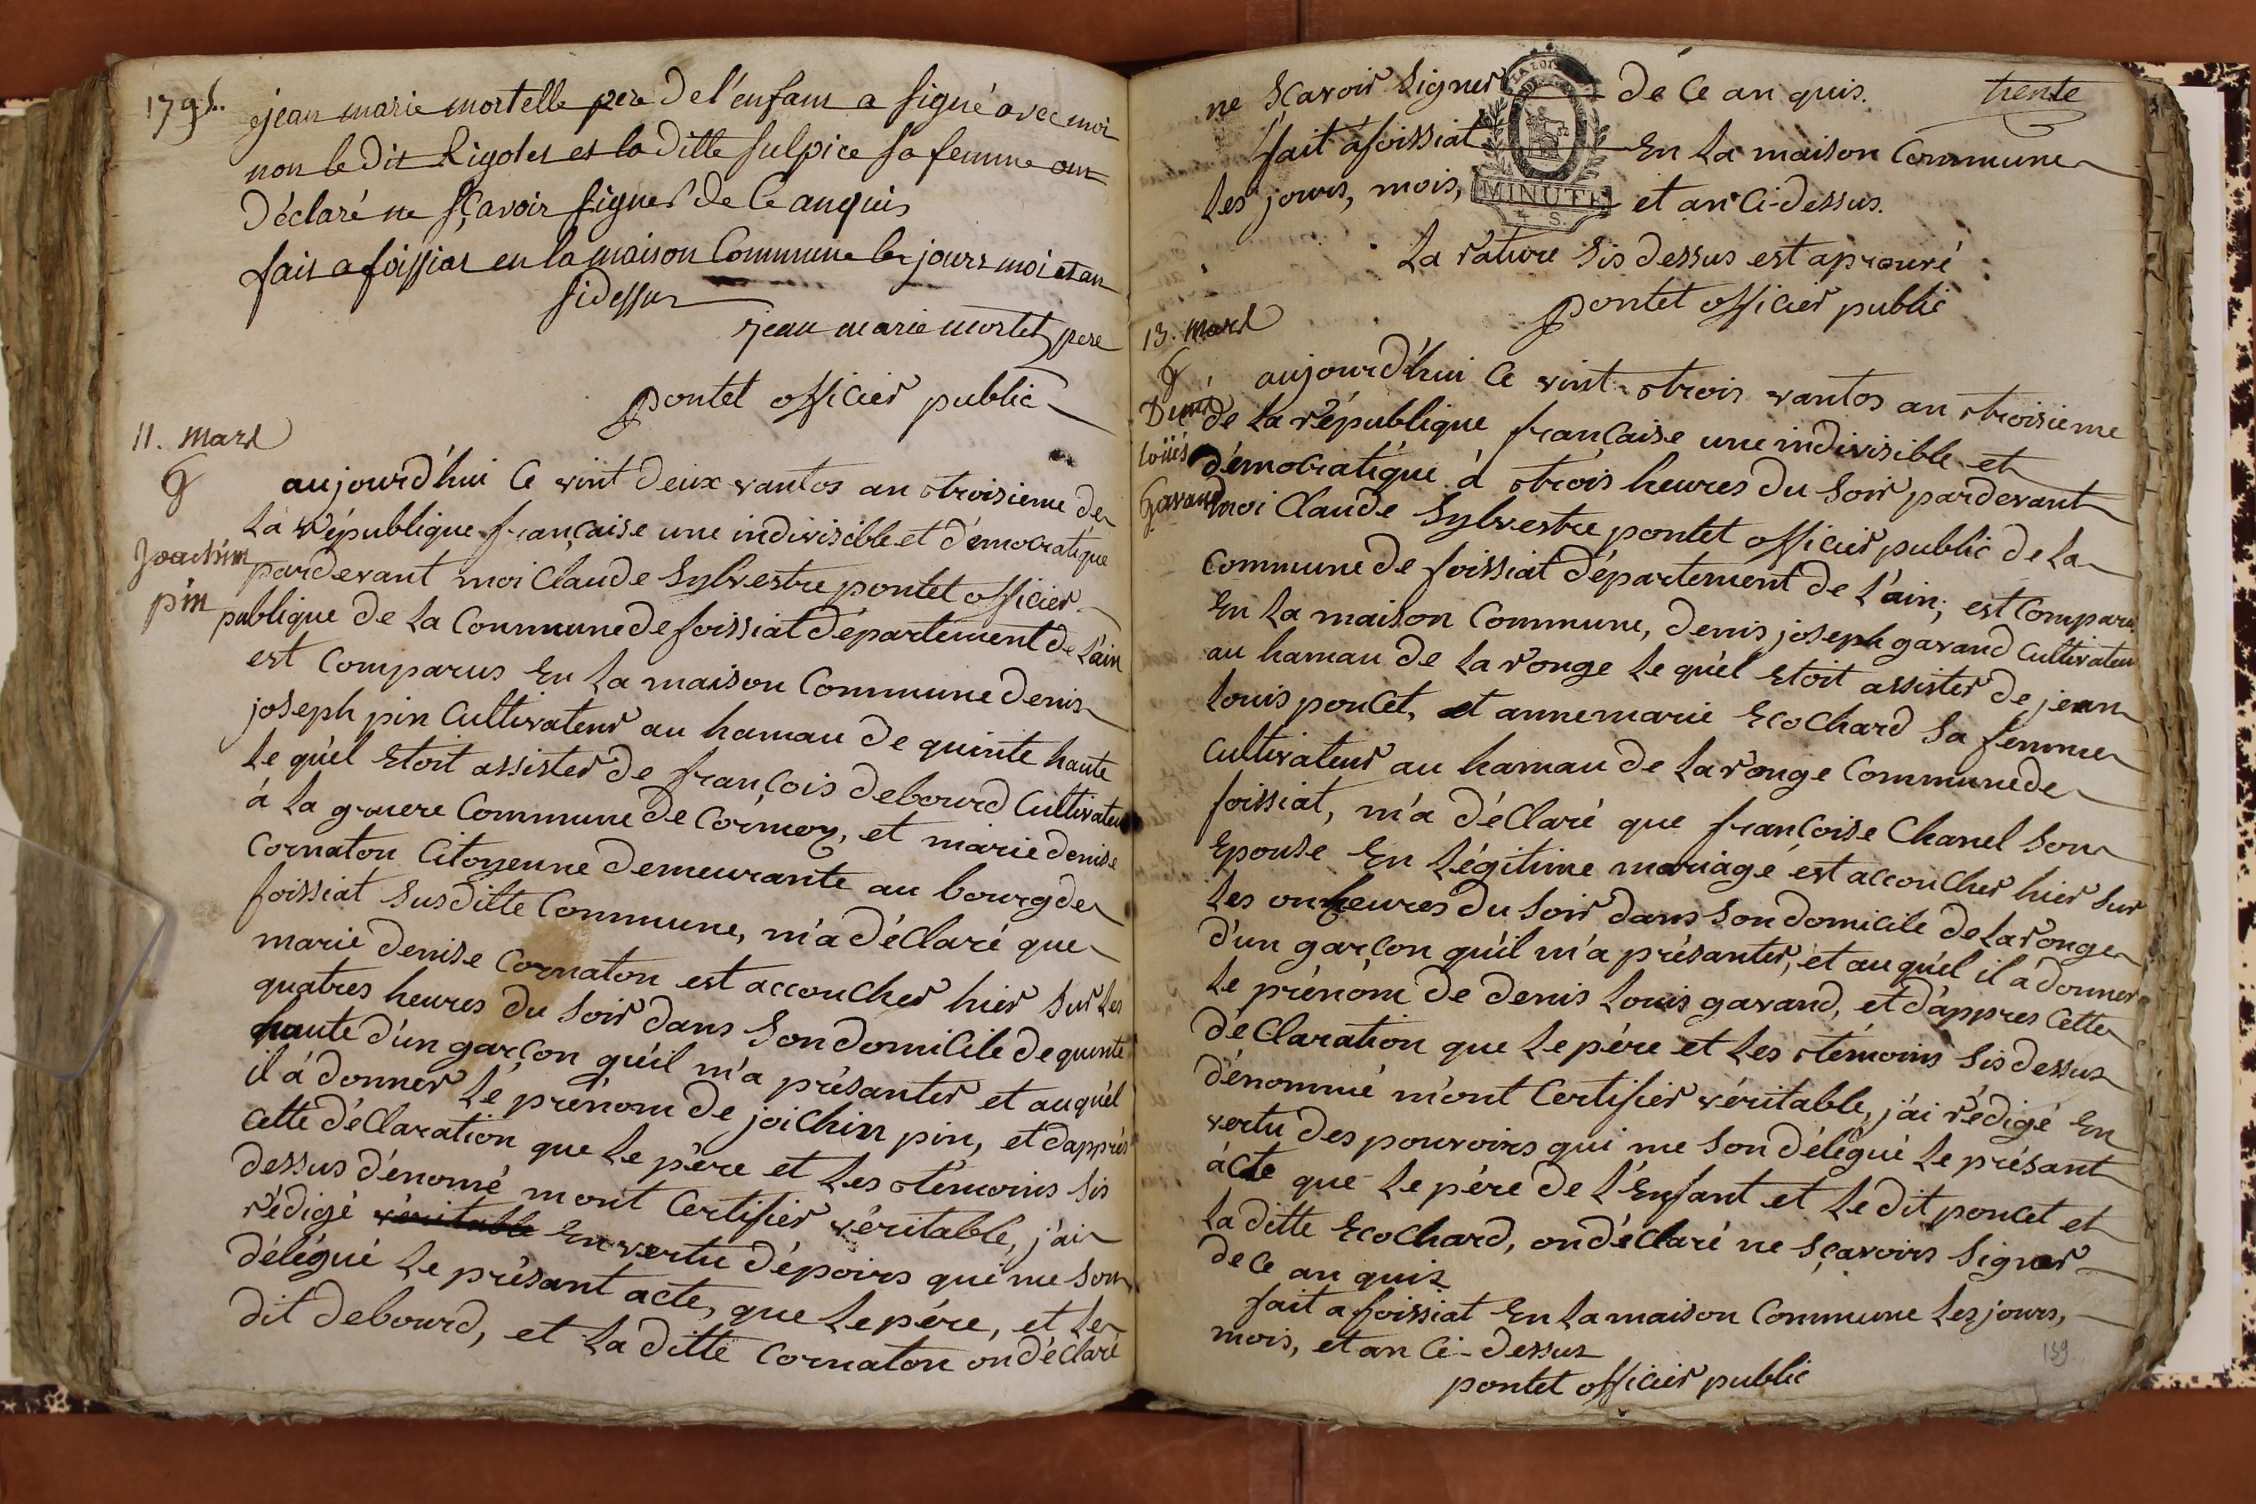 1795.
jean marie mortelle pere de l'enfant a signé avec moi
non le dit Rigolet et la ditte sulpice sa femme ont
déclaré ne sçavoir signer de ce anquis
fait a foissiat en la maison commune les jours moi et an
sidessus
jean marie mortel pere
pontet officier public
11. mars
G
joachim
pin
aujourd'hui ce vint deux vantos an troisieme de
la république française une indivisible et démocratique
pardevant moi claude sylvestre pontet officier
publique de la commune de foissiat département de l'ain
est comparus en la maison commune denis
joseph pin cultivateur au hamau de quinte haute
le quel etoit assister de françois debourd cultivateur
à la gruere commune de cormoz, et marie denise
cornaton citoyenne demeurante au bourg de
foissiat susditte commune, m'a déclaré que
marie denise cornaton est accoucher hier sur les
quatres heures du soir dans son domicile de quinte
haute d'un garçon qu'il m'a présanter et auquél
il à donner le prénom de joichin pin, et d'apprés
cette déclaration que le père et les témoins sis
dessus dénomé mont certifier véritable, j'ai
rédigé véritable en vertu dépoirs qui me son
délégué le présant acte, que le pére, et le
dit debourd, et la ditte cornaton on déclaré
trente
ne sçavoir signer de ce an quis.
fait à foissiat en la maison commune
les jours, mois, et an ci-dessus.
LA LOI
MINUTE
4 S.
la rature sis dessus est aprouvé
pontet officier public
13. mars
G
Denis
loüés
Gavand
aujourd'hui ce vint trois vantos an troisieme
de la république française une indivisible et
démocratique à trois heures du soir pardevant
moi claude sylvestre pontet officier public de la
commune de foissiat département de l'ain, est comparu
en la maison commune, denis joseph gavand cultivateur
au hamau de la ronge le quél etoit assister de jean
louis poncet, et annemarie ecochard sa femme
cultivateur au hamau de la ronge commune de
foissiat, m'a déclaré que françoise chanel son
epouse en légitime mariage est accoucher hier sur
les onze heures du soir dans son domicile de la ronge
d'un garçon qu'il m'a présanter, et au quél il à donner
le prénom de denis louis gavand, et d'appres cette
déclaration que le pére et les témoins sis dessus
dénommé m'ont certifier véritable, j'ai rédigé en
vertu des pouvoirs qui me son délégué le présant
àcte que le pére de l'enfant et le dit poncet et
la ditte ecochard, on déclaré ne sçavoirs signer
de ce an quis
fait a foissiat en la maison commune les jours,
mois, et an ci-dessus
pontet officier public
139